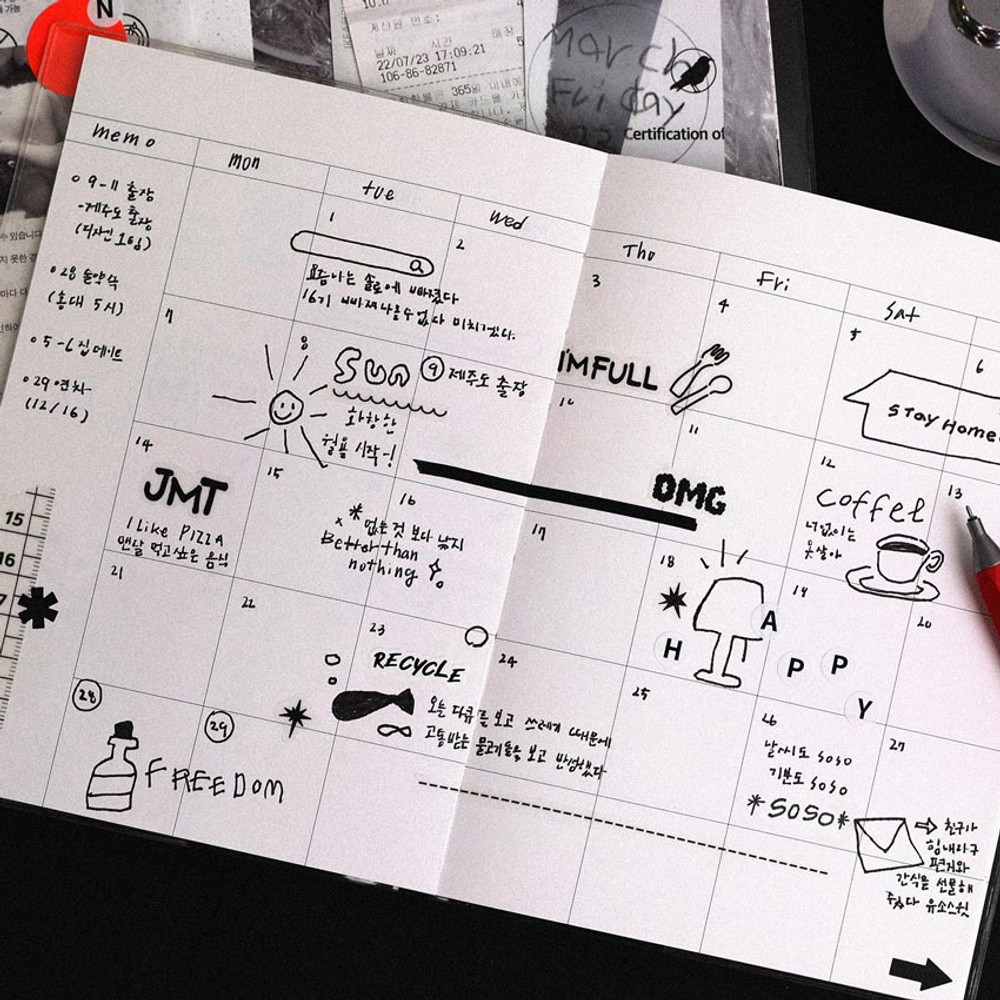 N
계산원 번호:
날짜 시간 매장
22/07/23 17:09:21
106-86-82871
365일 이내에
March
Friday
Certification of
memo
mon
tue
wed
Thu
Fri
Sat
9-11 출장
-제주도 출장
(디자인 1팀)
28 술약속
(홍대 5시)
5-6 집데이트
29 연차
(12/16)
1
요즘 나는 솔로에 빠졌다
16기 빠져나올 수 없다 미치겠다.
2
3
I'M FULL
4
5
STAY Home
6
7
8
SUN
화창한
월욜 시작-!
9 제주도 출장
10
11
OMG
12
COFFEE
너 없이는
못살아
13
14
JMT
I Like PIZZA
맨날 먹고싶은 음식
15
16
없는 것 보다 낫지
Better than
nothing
17
18
HAPPY
19
20
21
22
23
RECYCLE
오늘 다큐를 보고 쓰레기 때문에
고통받는 물고기들을 보고 반성했다
24
25
26
날씨도 SOSO
기분도 SOSO
*SOSO*
27
친구가
힘내라구
편지와
간식을 선물해
주었다 유소스윗
28
FREEDOM
29
15
16
7